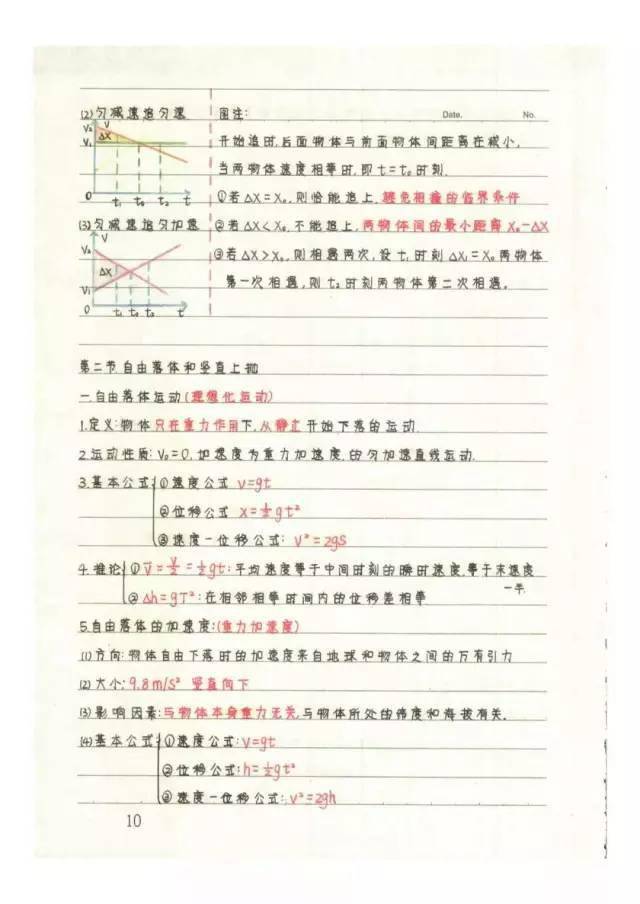 (2)匀减速追匀速
V
V₂
V₁
ΔX
0
t₁ t₀ t₂ t
(3)匀减速追匀加速
V
V₂
V₁
ΔX
0
t₁ t₀ t₂ t
图注:
Date. No.
开始追时,后面物体与前面物体间距离在减小,
当两物体速度相等时,即t=t₀时刻.
①若ΔX=X₀,则恰能追上,避免相撞的临界条件
②若ΔX<X₀,不能追上,两物体间的最小距离X₀-ΔX
③若ΔX>X₀,则相遇两次,设t₁时刻ΔX₁=X₀两物体
第一次相遇,则t₂时刻两物体第二次相遇。
第二节自由落体和竖直上抛
一.自由落体运动(理想化运动)
1.定义:物体只在重力作用下,从静止开始下落的运动.
2.运动性质:V₀=0,加速度为重力加速度.的匀加速直线运动.
3.基本公式①速度公式 v=gt
②位移公式 x=½gt²
③速度一位移公式: v²=2gs
4.推论①v̄=v/2=½gt:平均速度等于中间时刻的瞬时速度.等于末速度
一半
②Δh=gT²:在相邻相等时间内的位移差相等
5.自由落体的加速度:(重力加速度)
(1)方向:物体自由下落时的加速度来自地球和物体之间的万有引力
(2)大小:9.8m/s² 竖直向下
(3)影响因素:与物体本身重力无关,与物体所处的纬度和海拔有关.
(4)基本公式①速度公式:v=gt
②位移公式:h=½gt²
③速度一位移公式:v²=2gh
10